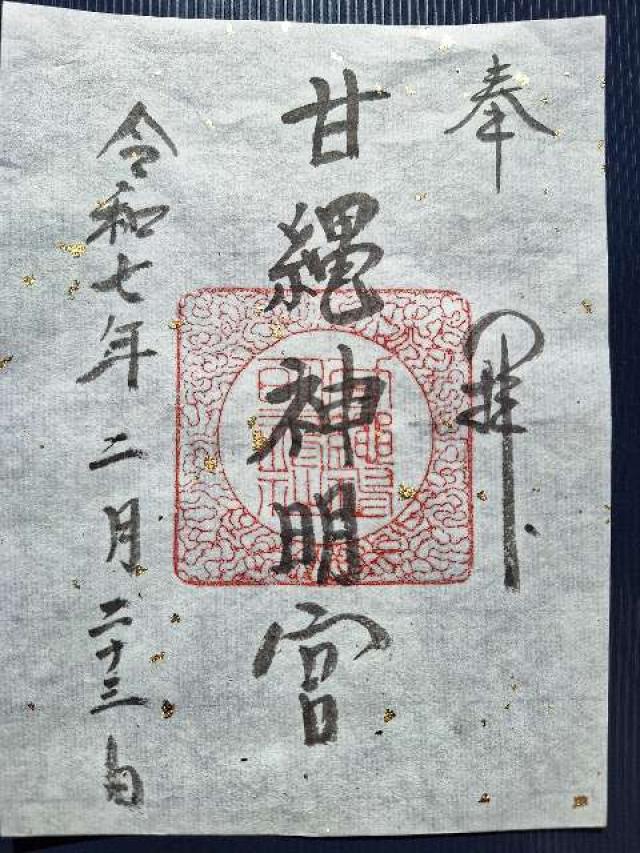 奉拝
甘縄神明宮
令和七年二月二十三日